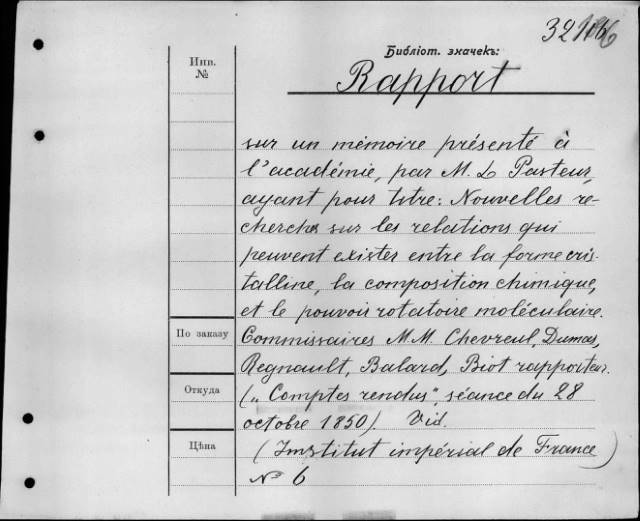 Инв.
№
Библіот. значекъ:
Rapport
sur un mémoire présenté à
l'académie, par M. L Pasteur,
ayant pour titre: Nouvelles re-
cherches sur les relations qui
peuvent exister entre la forme cris-
talline, la composition chimique,
et le pouvoir rotatoire moléculaire.
По заказу
Commissaires M.M. Chevreul, Dumas,
Regnault, Balard, Biot rapporteur.
Откуда
(„Comptes rendus" séance du 28
octobre 1850) Vid.
Цѣна
(Institut impérial de France)
№ 6